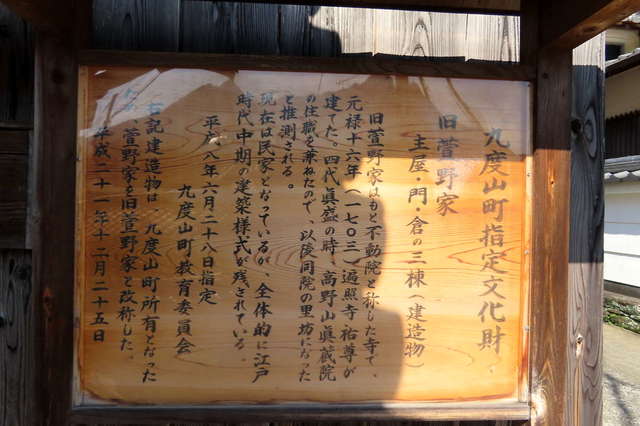 九度山町指定文化財
旧萱野家
主屋・門・倉の三棟（建造物）
旧萱野家はもと不動院と称した寺で、
元禄十六年（一七〇三）遍照寺祐尊が
建てた。四代真盛の時、高野山眞蔵院
の住職を兼ねたので、以後同院の里坊になった
と推測される。
現在は民家となっているが、全体的に江戸
時代中期の建築様式が残されている。
平成八年六月二十八日指定
九度山町教育委員会
右記建造物は、九度山町所有となった
ため、萱野家を旧萱野家と改称した。
平成二十一年十二月二十五日